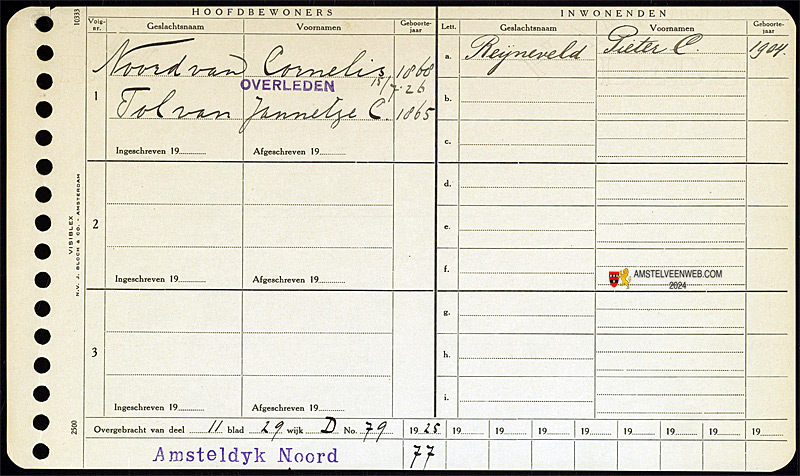 HOOFDBEWONERS INWONENDEN
Volg-nr. Geslachtsnaam Voornamen Geboorte-jaar Lett. Geslachtsnaam Voornamen Geboorte-jaar
10333
1
Noord van Cornelis 1868
OVERLEDEN 15/7-26
Tol van Jannetje C. 1865
Ingeschreven 19 Afgeschreven 19
2
Ingeschreven 19 Afgeschreven 19
3
Ingeschreven 19 Afgeschreven 19
a. Reijneveld Pieter C. 1904.
b.
c.
d.
e.
f.
AMSTELVEENWEB.COM
2024
g.
h.
i.
VISIBLEX
N.V. J. BLOCH & CO. - AMSTERDAM
2500
Overgebracht van deel 11 blad 29 wijk D No. 79 1925 19 19 19 19 19 19 19 19
Amsteldyk Noord 77